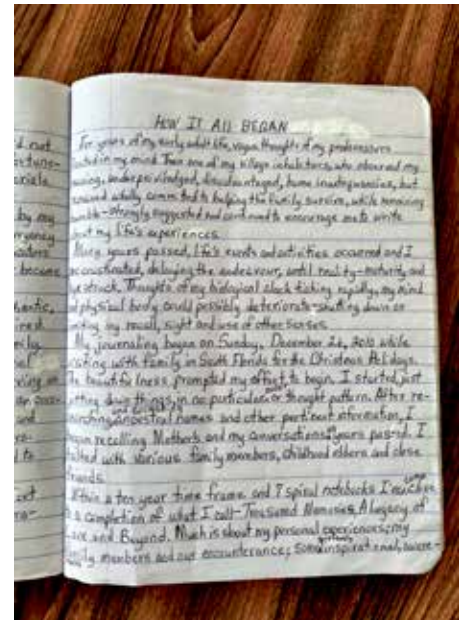 HOW IT All BEGAN
For years of my early adult life, vague thoughts of my predecessors
in my mind. Then one of my village inhabitants, who observed my
underpriviledged, disadvantaged, home inadequacies, but
wholly committed to helping the family survive, while remaining
strongly suggested and continued to encourage me to write
about my life's experiences.
Many years passed, life's events and activities occurred and I
procrastinated, delaying the endeavour, until reality-maturity and
struck. Thoughts of my biological clock ticking rapidly, my mind
physical body could possibly deteriorate-shutting down or
my recall, sight and use of other senses.
My journaling began on Sunday, December 26, 2010 while
visiting with family in South Florida for the Christmas Holidays.
prompted my effort to begin. I started just
jotting down things, in no particular or thought pattern. After re-
searching ancestral names and other pertinent information, I
began recalling Mother's and my conversations years passed. I
talked with various family members, childhood elders and close
friends.
Within a ten year time frame and 7 spiral notebooks I
a completion of what I call-Treasured Memories, A Legacy of
Love and Beyond. Much is about my personal experiences; my
family members and our ; some inspirational, aware-
d not
by my
became
hentic,
mily
and
d to